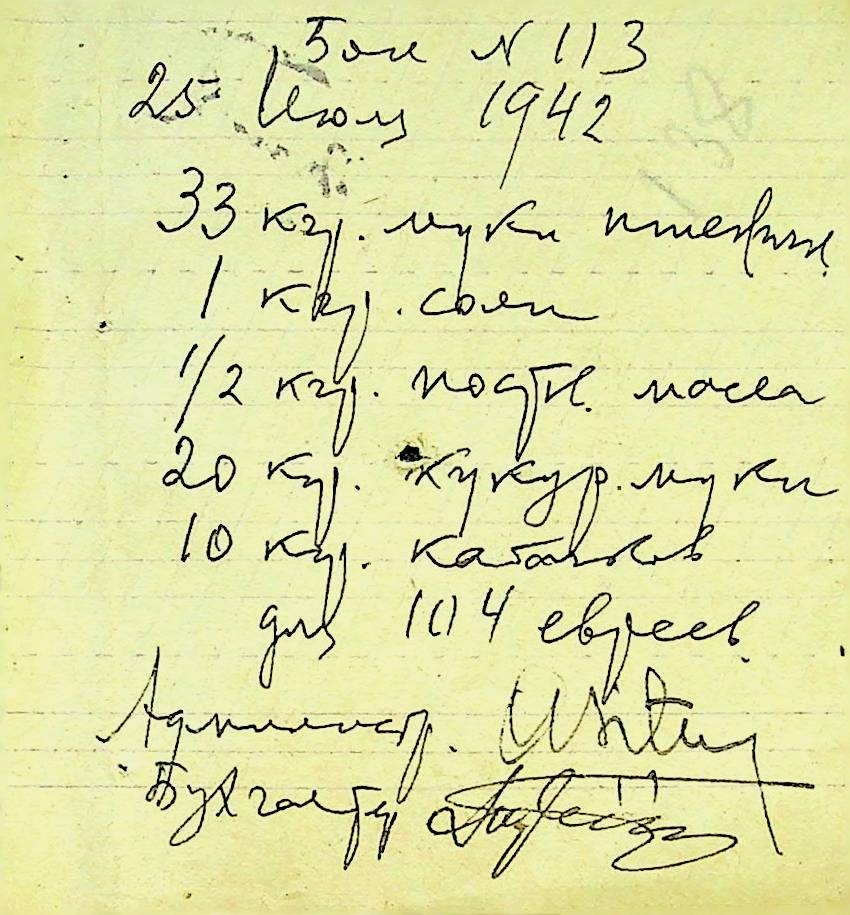 Бон N 113
25 Июля 1942
33 кгр. муки пшеничн.
1 кгр. соли
1/2 кгр. постн. масла
20 кгр. кукур. муки
10 кгр. кабачков
для 104 евреев
Администр.
Бухгалтер
138